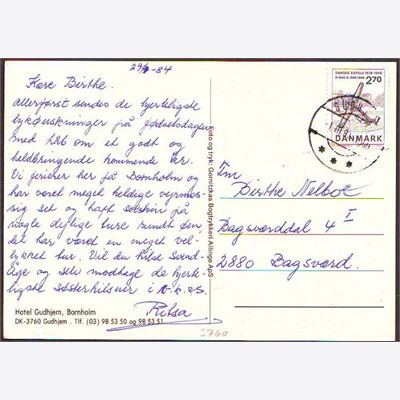 29/6-84
Kære Birthe.
allerførst sendes de hjerteligste
lykønskninger på fødselsdagen
med håb om et godt og
heldbringende kommende år.
Vi ferierer her på Bornholm og
har været meget heldige vejrmæs-
sig set og haft solskin på
nogle dejlige ture rundt den-
det har været en meget vel-
lykket tur. Vil du hilse Svend
Åge og selv modtage de hjerte-
ligste søsterhilsner i
Hotel Gudhjem, Bornholm
DK-3760 Gudhjem . Tlf. (03) 98 53 50 og 98 53 51
Foto og tryk: Bogtrykkeri Allinge ApS
DANSKE SØFOLK 1939-1945
D-DAG 6. JUNI 1944
2.70
DANMARK
Birthe Nelboe
Bagsværddal 4 I
2880 Bagsværd.
3760